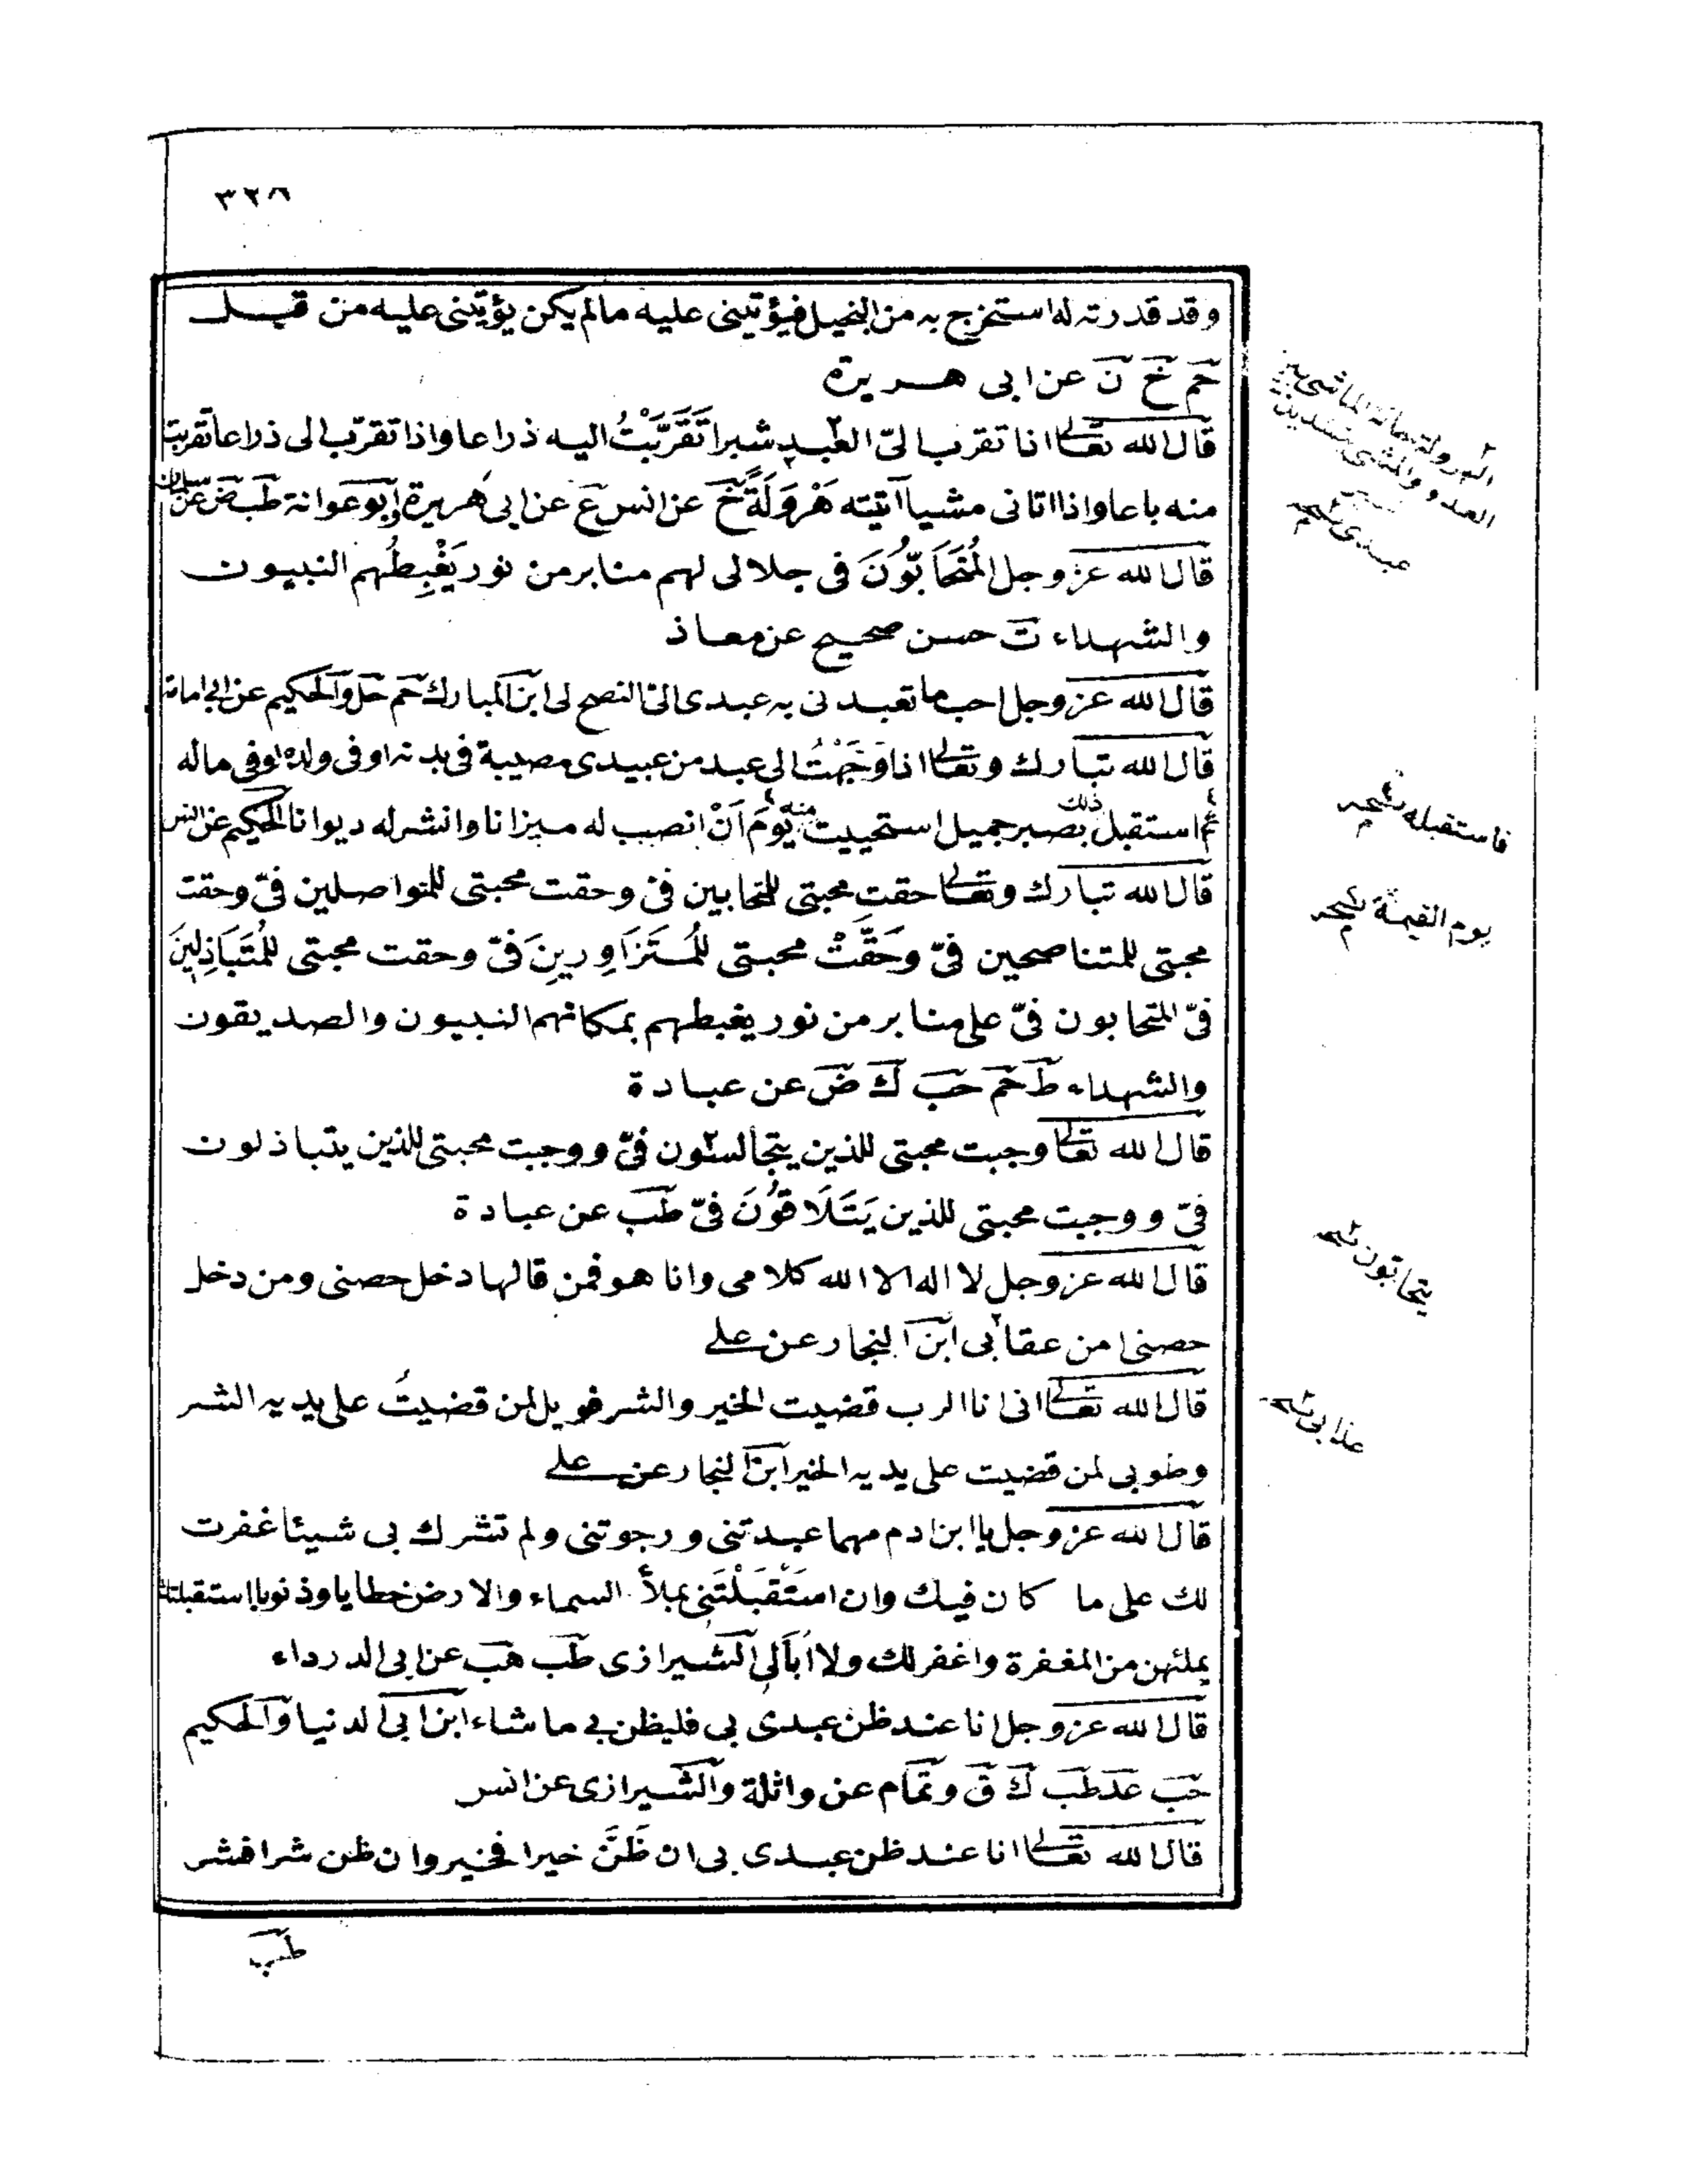 ٣٢٨
وقد قدرته له استخرج به من البخيل فيؤتينى عليه مالم يكن يؤتينى عليه من قبل
حم خ ن عن ابى هريرة
قال الله تعالى اذا تقرب الىّ العبد شبرا تَقَرَّبْتُ اليه ذراعا واذا تقرّب الى ذراعا تقربت
منه باعا واذا اتانى مشيا آتيته هَرْوَلَةً خ عن انس ع عن ابى هريرة وابو عوانة طب ض عن سلمان
قال الله عز وجل المُتَحَابُّونَ فى جلالى لهم منابر من نور يَغْبِطُهم النبيون
والشهداء ت حسن صحيح عن معاذ
قال الله عز وجل احب ما تعبدنى به عبدى الىّ النصح لى ابن المبارك حم حل والحكيم عن ابى امامة
قال الله تبارك وتعالى اذا وَجَّهْتُ الى عبد من عبيدى مصيبة فى بدنه او فى ولده او فى ماله
ثم استقبل ذلك بصبر جميل استحييت منه يَوْمَ اَنْ انصب له ميزانا وانشر له ديوانا الحكيم عن انس
قال الله تبارك وتعالى حقت محبتى للمتحابين فىّ وحقت محبتى للمتواصلين فىّ وحقت
محبتى للمتناصحين فىّ وحَقَّتْ محبتى للمُتَزَاوِرِينَ فىّ وحقت محبتى للمُتَبَاذِلِينَ
فىّ المتحابون فىّ على منابر من نور يغبطهم بمكانهم النبيون والصديقون
والشهداء ط حم حب ك ض عن عبادة
قال الله تعالى وجبت محبتى للذين يتجالسون فىّ ووجبت محبتى للذين يتباذلون
فىّ ووجبت محبتى للذين يَتَلَاقُونَ فىّ طب عن عبادة
قال الله عز وجل لا اله الا الله كلامى وانا هو فمن قالها دخل حصنى ومن دخل
حصنى امن عقابى ابن النجار عن على
قال الله تعالى انى انا الرب قضيت الخير والشر فويل لمن قضيتُ على يديه الشر
وطوبى لمن قضيت على يديه الخير ابن النجار عن على
قال الله عز وجل يا ابن ادم مهما عبدتنى ورجوتنى ولم تشرك بى شيئا غفرت
لك على ما كان فيك وان استَقْبَلْتَنِى بملأ السماء والارض خطايا وذنوبا استقبلتك
بملئهن من المغفرة واغفر لك ولا اُبَالِى الشيرازى طب هب عن ابى الدرداء
قال الله عز وجل انا عند ظن عبدى بى فليظن بى ما شاء ابن ابى الدنيا والحكيم
حب عد طب ك ق وتمام عن واثلة والشيرازى عن انس
قال الله تعالى انا عند ظن عبدى بى ان ظَنَّ خيرا فخير وان ظن شرا فشر
طب
عبدى نسخه
فاستقبله نسخه
يوم القيمة نسخه
يتحابون نسخه
عذابى نسخه